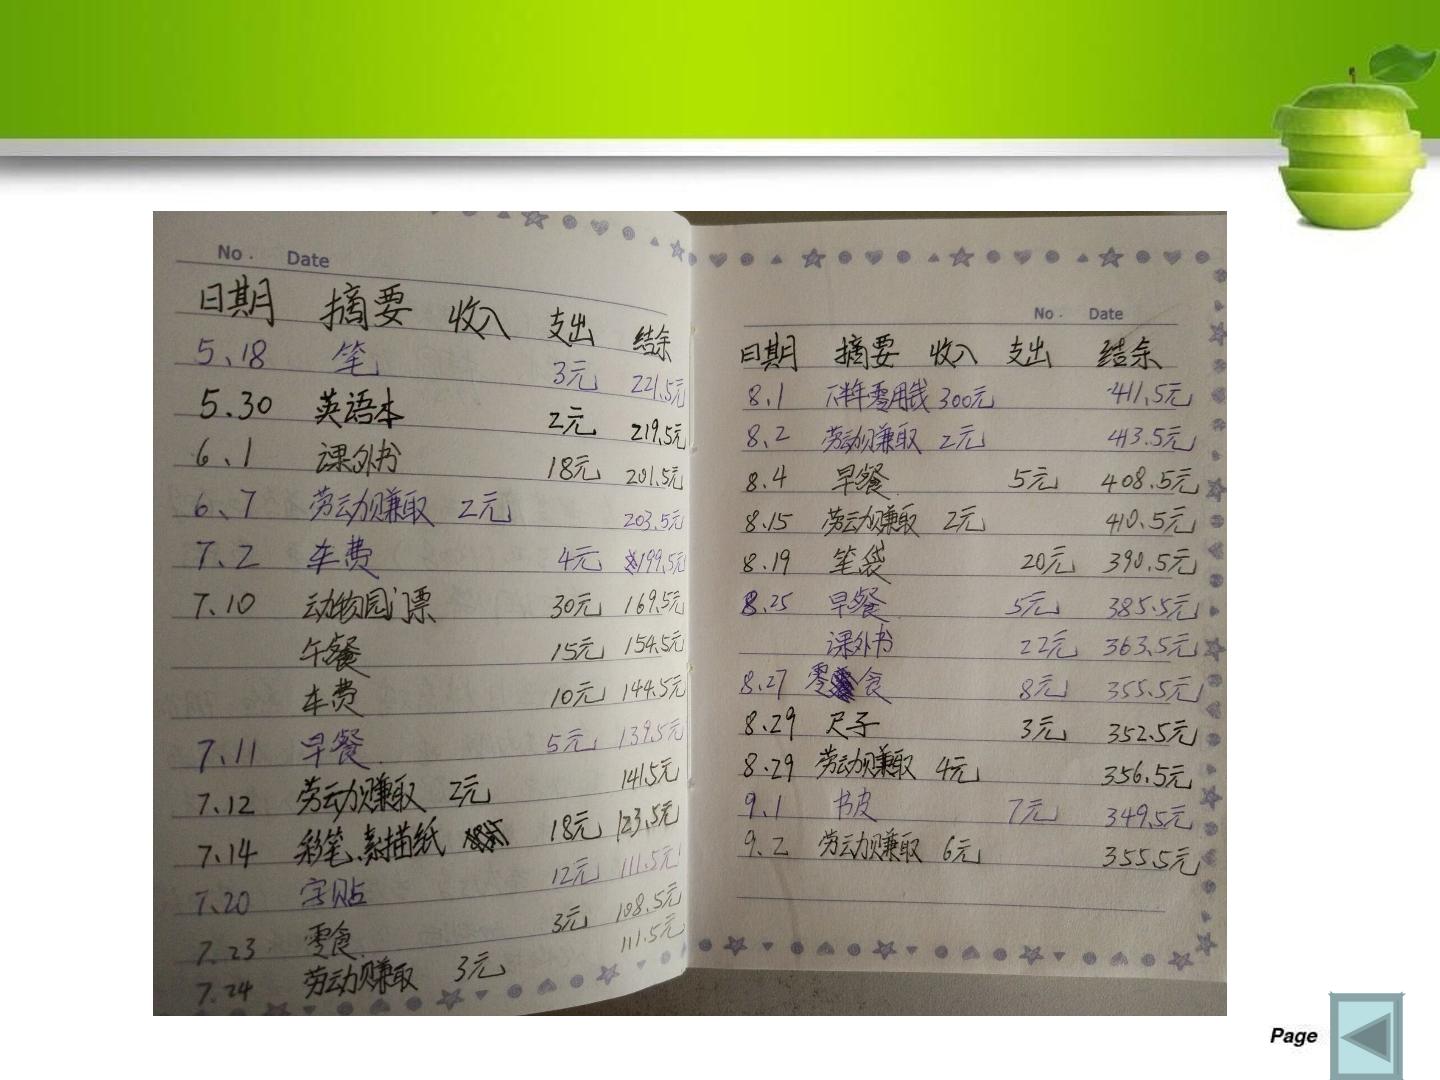 No. Date
日期 摘要 收入 支出 结余
5、18 笔 3元 221.5元
5.30 英语本 2元 219.5元
6、1 课外书 18元 201.5元
6、7 劳动赚取 2元 203.5元
7、2 车费 4元 199.5元
7.10 动物园门票 30元 169.5元
午餐 15元 154.5元
车费 10元 144.5元
7.11 早餐 5元 139.5元
7.12 劳动赚取 2元 141.5元
7.14 彩笔、素描纸 18元 123.5元
7.20 字贴 12元 111.5元
7.23 零食 3元 108.5元
7.24 劳动赚取 3元 111.5元
No. Date
日期 摘要 收入 支出 结余
8.1 下半年零用钱 300元 411.5元
8.2 劳动赚取 2元 413.5元
8.4 早餐 5元 408.5元
8.15 劳动赚取 2元 410.5元
8.19 笔袋 20元 390.5元
8.25 早餐 5元 385.5元
课外书 22元 363.5元
8.27 零食 8元 355.5元
8.29 尺子 3元 352.5元
8.29 劳动赚取 4元 356.5元
9.1 书皮 7元 349.5元
9.2 劳动赚取 6元 355.5元
Page